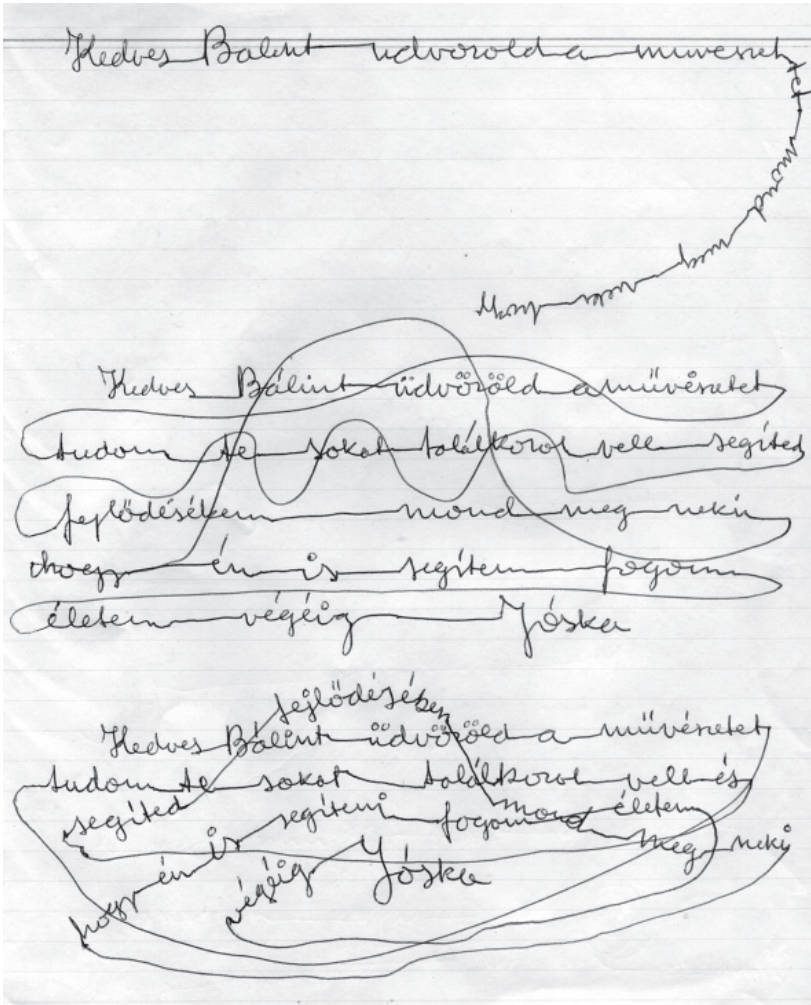 Kedves Balint udvozold a muveszet
tet
mond
meg
neki
hogy
Kedves Bálint üdvözöld a müvészetet
tudom te sokat találkozol vele segíted
fejlödésében mond meg neki
hogy én is segíteni fogom
életem végéig Jóska
fejlödésében
Kedves Bálint üdvözöld a müvészetet
tudom te sokat találkozol vele és
segíted mond meg neki
hogy én is segíteni fogom életem
végéig Jóska